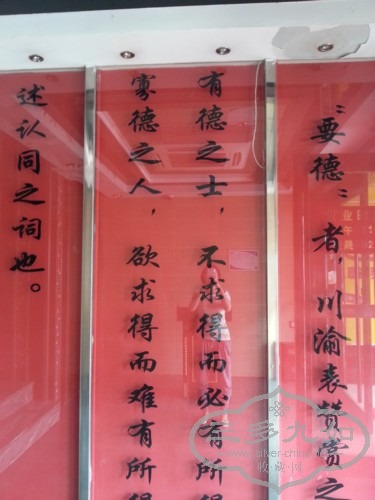 “要德”者，川渝表赞赏之
有德之士，不求得而必有所得
寡德之人，欲求得而难有所得
述认同之词也。
多九如
收藏网